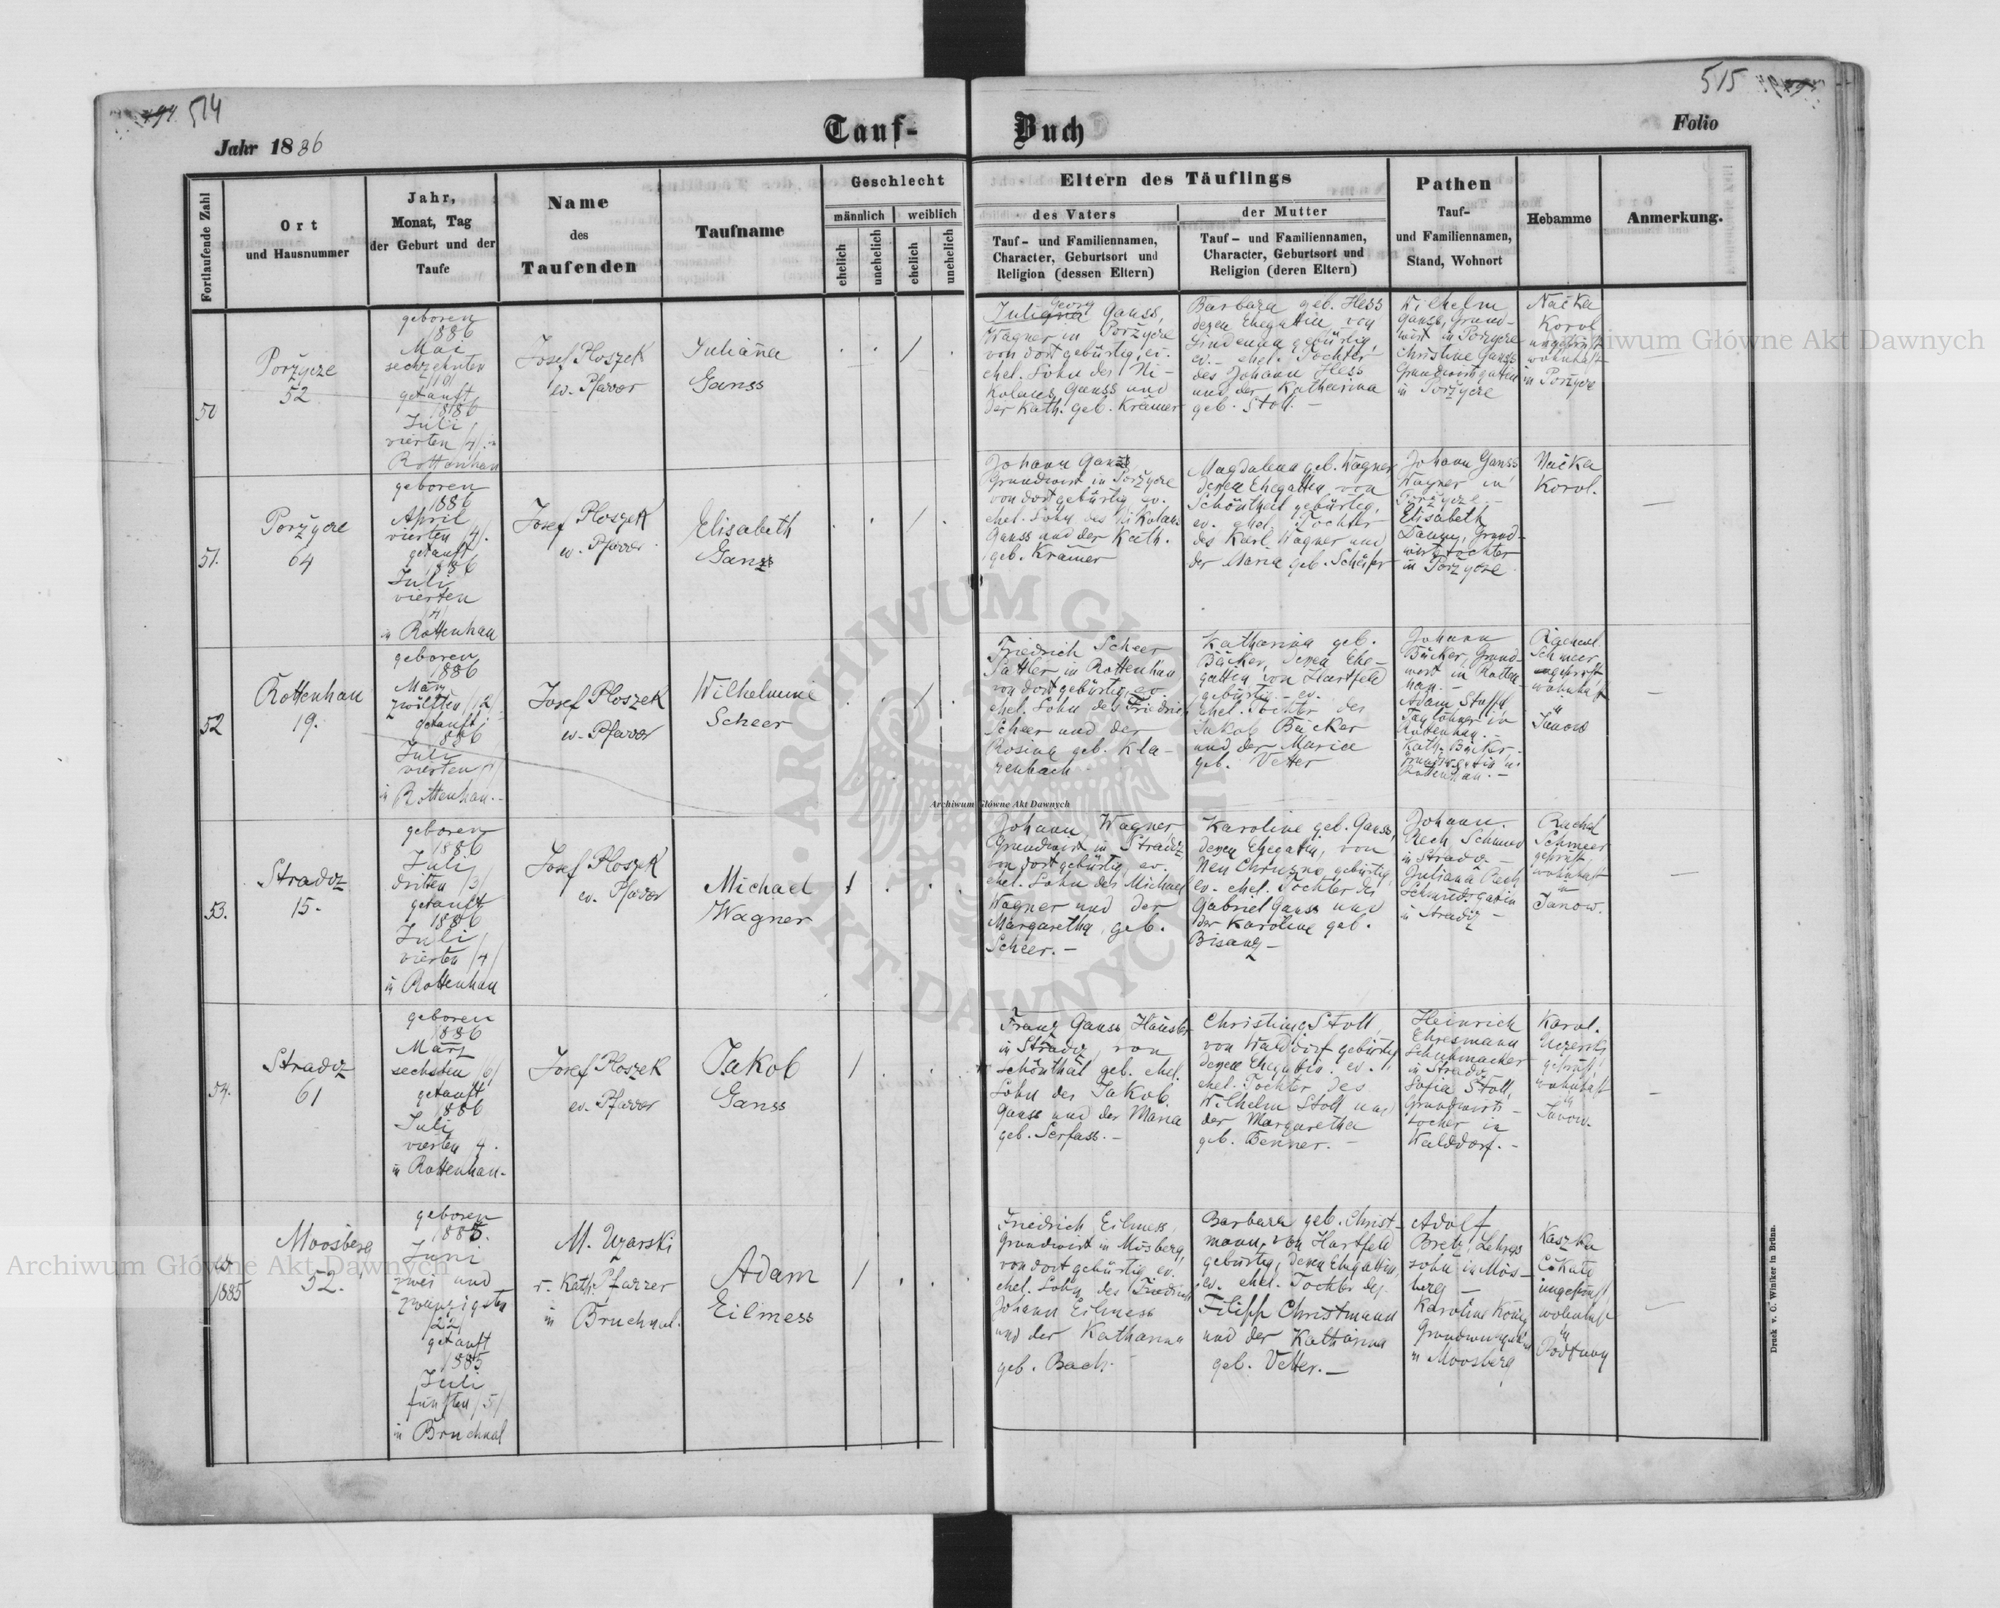 514
515
Jahr 1886
Tauf-
Buch
Folio
Fortlaufende Zahl
Ort
und Hausnummer
Jahr,
Monat, Tag
der Geburt und der
Taufe
Name
des
Taufenden
Taufname
Geschlecht
männlich
weiblich
ehelich
unehelich
ehelich
unehelich
Eltern des Täuflings
des Vaters
Tauf- und Familiennamen,
Character, Geburtsort und
Religion (dessen Eltern)
der Mutter
Tauf- und Familiennamen,
Character, Geburtsort und
Religion (deren Eltern)
Pathen
Tauf-
und Familiennamen,
Stand, Wohnort
Hebamme
Anmerkung.
50
Porzycze
52
geboren
1886
Mai
sechzehnten
getauft
1886
Juli
vierten /4/ in
Rottenhan
Josef Ploszek
ev. Pfarrer
Juliana
Ganss
Georg Ganss,
Wagner in Porzycze
von dort gebürtig, ev.
ehel. Sohn des Ni-
kolaus Ganss und
der Kath. geb. Krämer
Barbara geb. Hess
deren Ehegattin von
Lindenau gebürtig,
ev. - ehel. Tochter
des Johann Hess
und der Katharina
geb. Stoll. -
Wilhelm
Ganss, Grund-
wirt in Porzycze
Christine Ganss
Grundwirtsgattin
in Porzycze
Naćka
Korol
ungeprüft
wohnhaft
in Porzycze
51.
Porzycze
64
geboren
1886
April
vierten /4/.
getauft
1886
Juli
vierten
/4/
in Rottenhan
Josef Ploszek
ev. Pfarrer
Elisabeth
Ganss
Johann Ganss
Grundwirt in Porzycze
von dort gebürtig ev.
ehel. Sohn des Nikolaus
Ganss und der Kath.
geb. Krämer
Magdalena geb. Wagner
deren Ehegattin von
Schönthal gebürtig,
ev. ehel. Tochter
des Karl Wagner und
der Maria geb. Schäfer
Johann Ganss
Wagner in
Porzycze -
Elisabeth
Grund-
wirtstochter
in Porzycze.
Naćka
Korol.
52
Rottenhan
19.
geboren
1886
März
zwölften /12/
getauft
1886
Juli
vierten /4/
in Rottenhan. -
Josef Ploszek
ev. Pfarrer
Wilhelmine
Scheer
Friedrich Scheer
Sattler in Rottenhan
von dort gebürtig, ev.
ehel. Sohn des Friedrich
Scheer und der
Rosina geb. Kla-
renbach
Katharina geb.
Bäcker, deren Ehe-
gattin von Hartfeld
gebürtig - ev.
ehel. Tochter des
Jakob Bäcker
und der Maria
geb. Vetter
Johann
Bäcker, Grund-
wirt in Rotten-
han. -
Adam
Taglöhner in
Rottenhan. -
Kath. Bäcker
in
Rottenhan. -
Schmeer
wohnhaft
in
Janow
53.
Stradcz
15.
geboren
1886
Juli
dritten /3/
getauft
1886
Juli
vierten /4/
in Rottenhan
Josef Ploszek
ev. Pfarrer
Michael
Wagner
Johann Wagner,
Grundwirt in Stradcz
von dort gebürtig, ev.
ehel. Sohn des Michael
Wagner und der
Margaretha, geb.
Scheer. -
Karoline geb. Ganss,
deren Ehegattin, von
Neu Chrusno gebürtig,
ev. ehel. Tochter des
Gabriel Ganss und
der Karoline geb.
Bisanz -
Johann
Rech Schmied
in Stradcz -
Juliana Rech
Schmiedsgattin
in Stradcz -
Rachel
Schmeer
geprüft
wohnhaft
in
Janow.
54.
Stradcz
61
geboren
1886
März
sechsten /6/
getauft
1886
Juli
vierten 4.
in Rottenhan -
Josef Ploszek
ev. Pfarrer
Jakob
Ganss
Franz Ganss Häusler
in Stradcz, von
Schönthal geb. ehel.
Sohn des Jakob
Ganss und der Maria
geb. Serfass. -
Christina Stoll,
von Walddorf gebürtig
deren Ehegattin. ev.
ehel. Tochter des
Wilhelm Stoll und
der Margaretha
geb. Benner. -
Heinrich
Ehresmann
Schuhmacher
in Stradcz
Sofia Stoll,
Grundwirts-
tochter in
Walddorf. -
Karol.
geprüft
wohnhaft
in
Janow.
1885
Moosberg
52.
geboren
1885.
Juni
zwei und
zwanzigsten
/22/
getauft
1885
Juli
fünften /5/
in Bruchnal
M. Uzarski
r. Kath. Pfarrer
in Bruchnal.
Adam
Eilmess
Friedrich Eilmess,
Grundwirt in Mosberg,
von dort gebürtig ev.
ehel. Sohn des Friedrich
Johann Eilmess
und der Katharina
geb. Bach. -
Barbara geb. Christ-
mann, von Hartfeld
gebürtig, deren Ehegattin,
ev. ehel. Tochter des
Filipp Christmann
und der Katharina
geb. Vetter. -
Adolf
Bretz, Lehrers
sohn in Mos-
berg -
Karoline König
in Moosberg
Kaszka
ungeprüft
wohnhaft
in
Druck v. C. Winiker in Brünn.
Archiwum Główne Akt Dawnych
Archiwum Główne Akt Dawnych
Archiwum Główne Akt Dawnych
ARCHIWUM GŁÓWNE AKT DAWNYCH